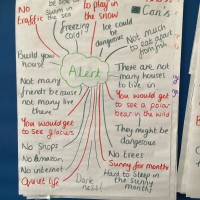 to play in
the snow
Con's
No
traffic
Swim in
the sea
freezing
cold!
Ice could
be
dangerous
Not much
to eat apart
from fish
Build your
house
Alert
There are not
many houses
to live in
Not many
friends because
not many live
there
You would get
to see a polar
bear in the wild
You would get
to see glaciers
They might be
dangerous
No Shops
No Amazon
No internet
Quiet life
No trees
Sunny for months
Hard to sleep in
the sunny
months
Dark
ness!